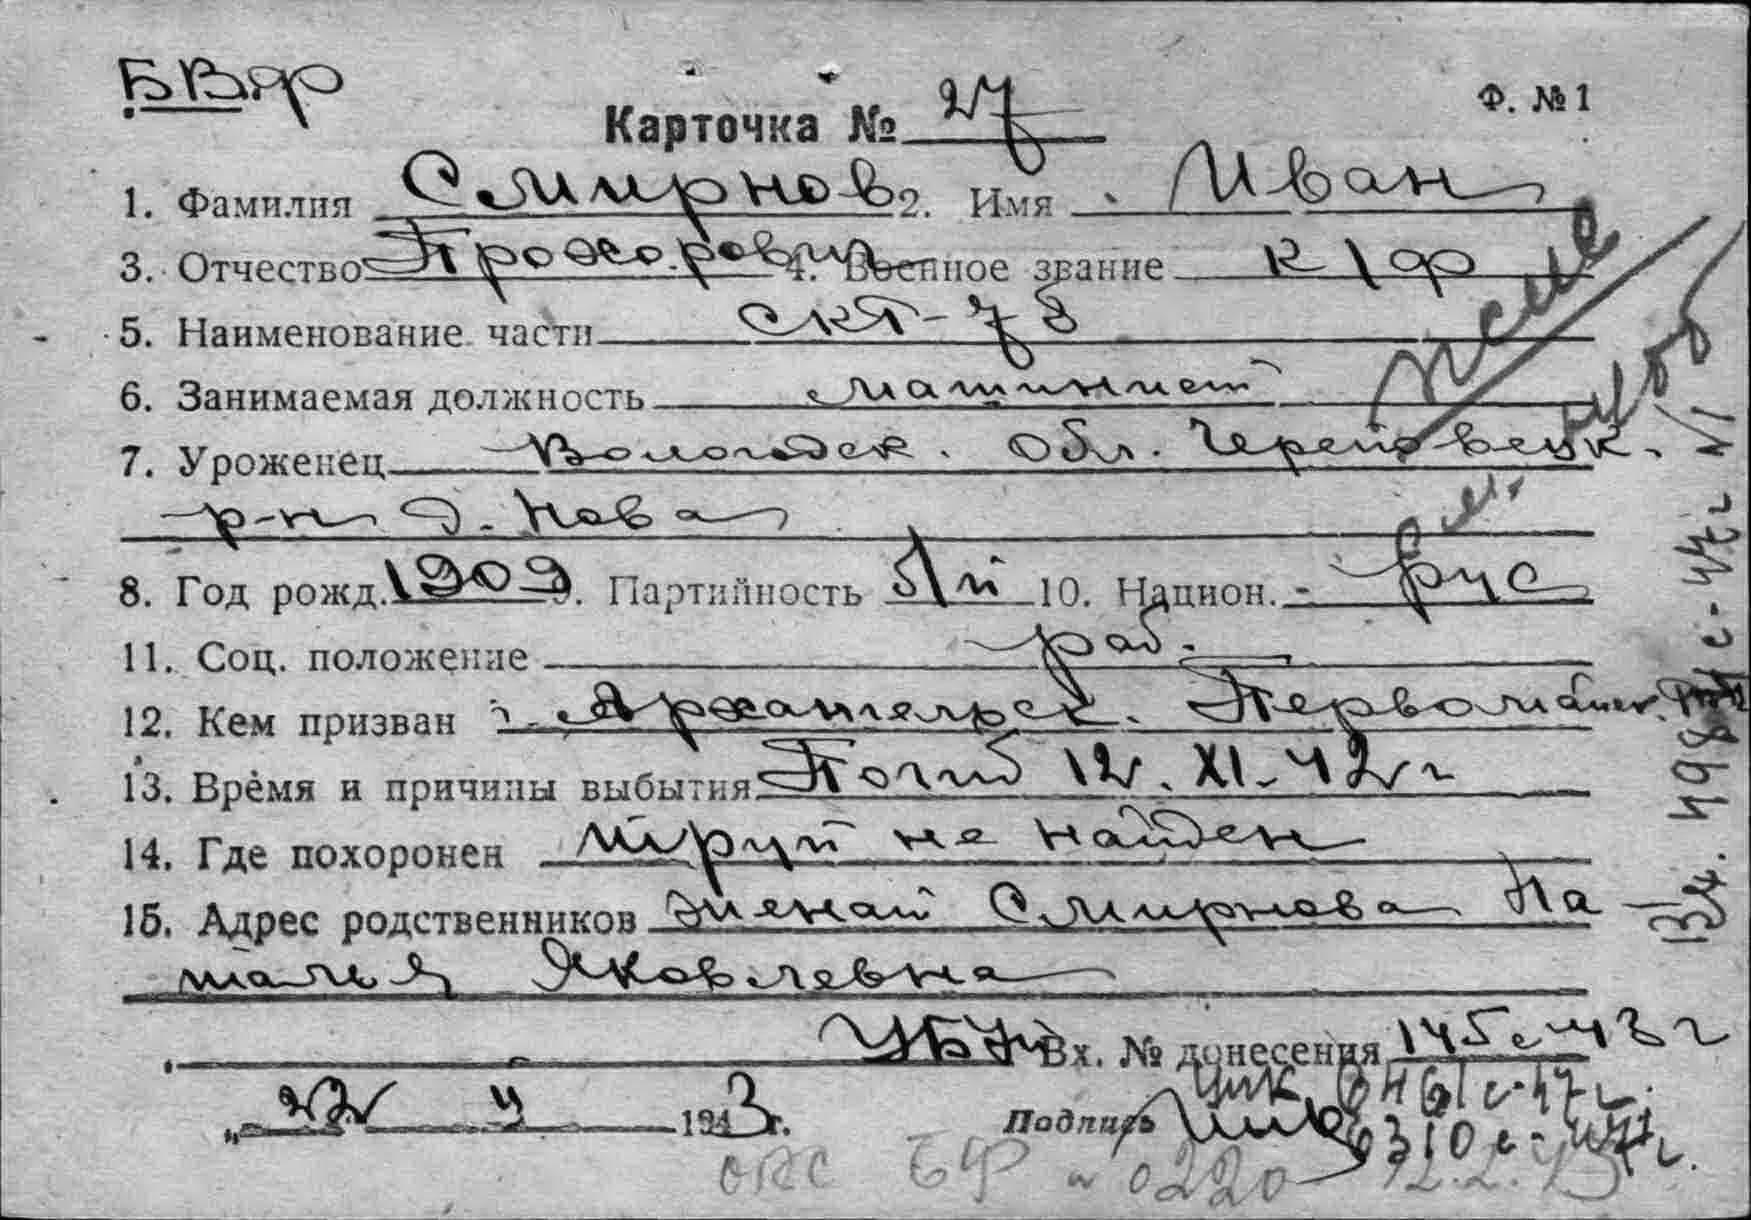 БВфр
Ф. № 1
Карточка № 27
1. Фамилия Смирнов 2. Имя Иван
3. Отчество Прохорович 4. Военное звание к/ф
5. Наименование части СКР-78
6. Занимаемая должность машинист
7. Уроженец Вологодск. обл. Череповецк.
р-н д. Нова
8. Год рожд. 1909 9. Партийность б/п 10. Национ. рус
11. Соц. положение раб.
12. Кем призван г. Архангельск. Первомайск. РВК
13. Время и причины выбытия Погиб 12. XI-42 г
14. Где похоронен труп не найден
15. Адрес родственников жена Смирнова На
талья Яковлевна
Вх. № донесения 145с-43 г
„22 4 1943 г.
Подпись
6310с-47 г.
БФ 0220 12.2.43